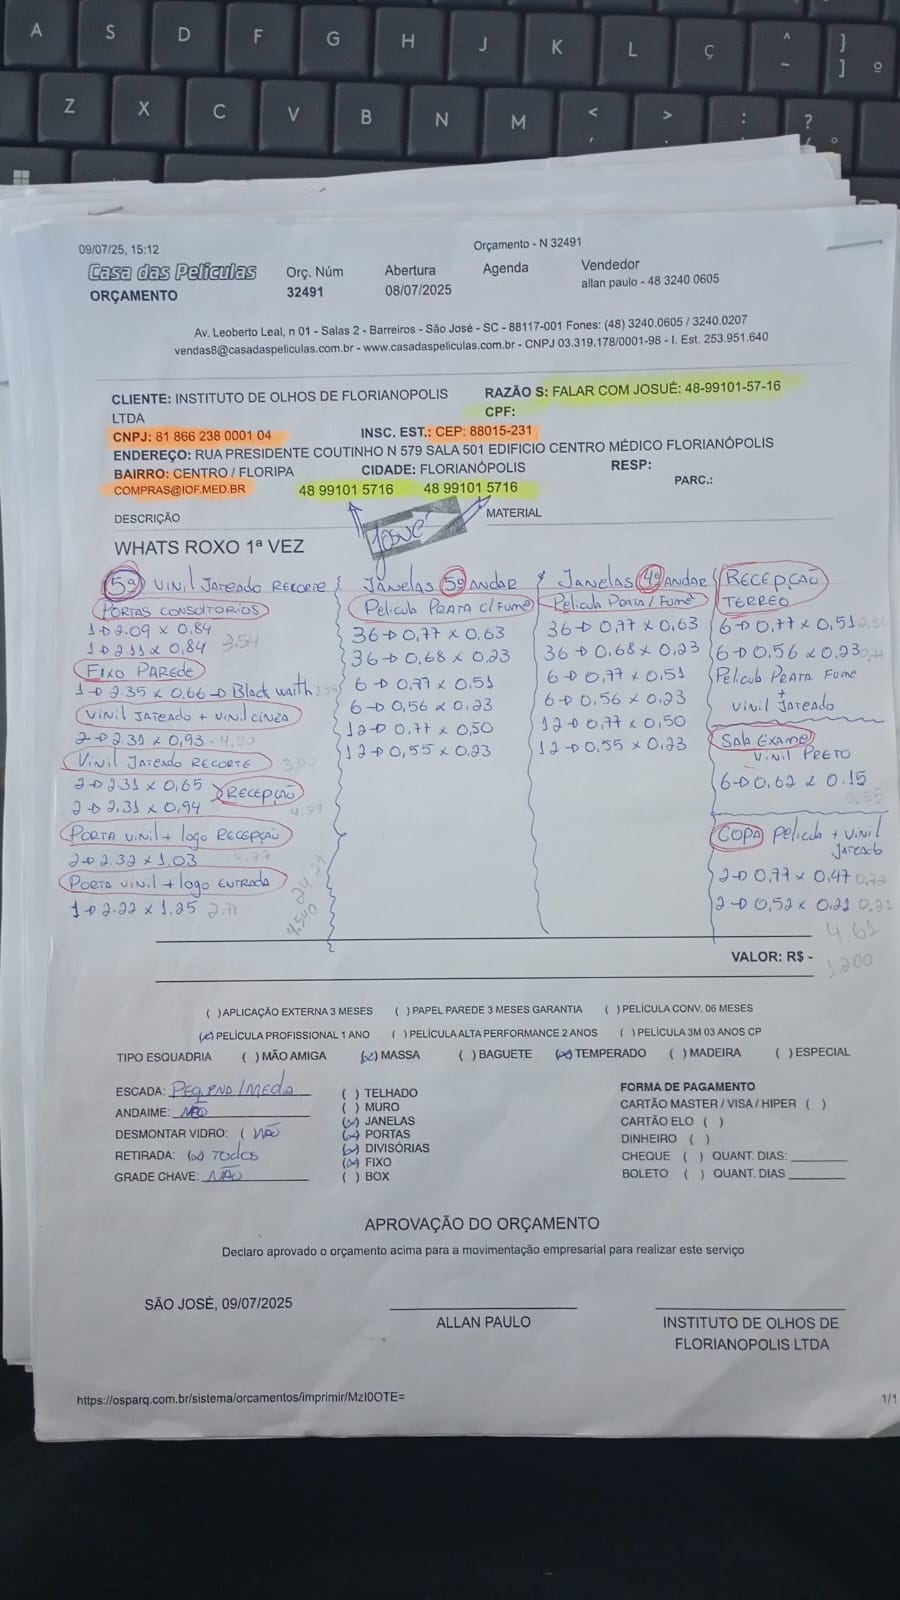 A S D F G H J K L Ç ^ ~ } ] º
Z X C V B N M < , > . : ; ? °
09/07/25, 15:12
Orçamento - N 32491
Casa das Películas
ORÇAMENTO
Orç. Núm
32491
Abertura
08/07/2025
Agenda
Vendedor
allan paulo - 48 3240 0605
Av. Leoberto Leal, n 01 - Salas 2 - Barreiros - São José - SC - 88117-001 Fones: (48) 3240.0605 / 3240.0207
vendas8@casadaspeliculas.com.br - www.casadaspeliculas.com.br - CNPJ 03.319.178/0001-98 - I. Est. 253.951.640
CLIENTE: INSTITUTO DE OLHOS DE FLORIANOPOLIS LTDA
RAZÃO S: FALAR COM JOSUÉ: 48-99101-57-16
CPF:
CNPJ: 81 866 238 0001 04
INSC. EST.: CEP: 88015-231
ENDEREÇO: RUA PRESIDENTE COUTINHO N 579 SALA 501 EDIFICIO CENTRO MÉDICO FLORIANÓPOLIS
BAIRRO: CENTRO / FLORIPA
CIDADE: FLORIANÓPOLIS
RESP:
COMPRAS@IOF.MED.BR
48 99101 5716
48 99101 5716
PARC.:
DESCRIÇÃO
Josué
MATERIAL
WHATS ROXO 1ª VEZ
5º VINIL JATEADO RECORTE
PORTAS CONSULTORIOS
1→2.09 x 0.84
1→2.11 x 0,84 3.54
FIXO PAREDE
1→2.35 x 0,66→Black waith
VINIL JATEADO + VINIL CINZA
2→2.31 x 0,93
VINIL JATEADO RECORTE 3,00
2→2.31 x 0,65
RECEPÇÃO
2→2,31 x 0,94
PORTA VINIL + logo RECEPÇÃO
2→2.32 x 1.03 4.77
PORTA VINIL + logo ENTRADA
1→2.22 x 1.25 2.77
4.540
JANELAS 5º ANDAR
Pelicula PRATA C/ FUMÊ
36→0,77 x 0,63
36→0,68 x 0,23
6→0,77 x 0,51
6→0,56 x 0,23
12→0.77 x 0,50
12→0,55 x 0,23
JANELAS 4º ANDAR
Pelicula PRATA / FUMÊ
36→0,77 x 0,63
36→0,68 x 0,23
6→0,77 x 0,51
6→0,56 x 0,23
12→0,77 x 0,50
12→0,55 x 0,23
RECEPÇÃO
TERREO
6→0,77 x 0,51
6→0.56 x 0.23
Pelicula PRATA FUME
+
VINIL JATEADO
Sala EXAME
VINIL PRETO
6→0.62 x 0.15
COPA Pelicula + VINIL
JATEADO
2→0,77 x 0,47 0,72
2→0,52 x 0.21 0.21
4.61
1,200
VALOR: R$ -
( )APLICAÇÃO EXTERNA 3 MESES ( )PAPEL PAREDE 3 MESES GARANTIA ( )PELÍCULA CONV. 06 MESES
(x)PELÍCULA PROFISSIONAL 1 ANO ( )PELÍCULA ALTA PERFORMANCE 2 ANOS ( )PELÍCULA 3M 03 ANOS CP
TIPO ESQUADRIA ( )MÃO AMIGA (x)MASSA ( )BAGUETE (x)TEMPERADO ( )MADEIRA ( )ESPECIAL
ESCADA: PEQUENA/MEDIA
ANDAIME: NÃO
DESMONTAR VIDRO: ( NÃO
RETIRADA: (x) TODOS
GRADE CHAVE: NÃO
( ) TELHADO
( ) MURO
(x) JANELAS
(x) PORTAS
(x) DIVISÓRIAS
(x) FIXO
( ) BOX
FORMA DE PAGAMENTO
CARTÃO MASTER / VISA / HIPER ( )
CARTÃO ELO ( )
DINHEIRO ( )
CHEQUE ( ) QUANT. DIAS:
BOLETO ( ) QUANT. DIAS
APROVAÇÃO DO ORÇAMENTO
Declaro aprovado o orçamento acima para a movimentação empresarial para realizar este serviço
SÃO JOSÉ, 09/07/2025
ALLAN PAULO
INSTITUTO DE OLHOS DE
FLORIANOPOLIS LTDA
https://osparq.com.br/sistema/orcamentos/imprimir/MzI0OTE=
1/1